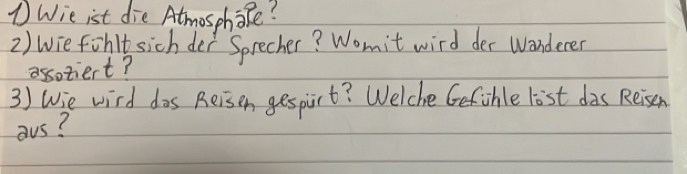 1) Wie ist die Atmosphäre?
2) Wie fühlt sich der Sprecher? Womit wird der Wanderer
assoziert?
3) Wie wird das Reisen gespürt? Welche Gefühle löst das Reisen
aus?